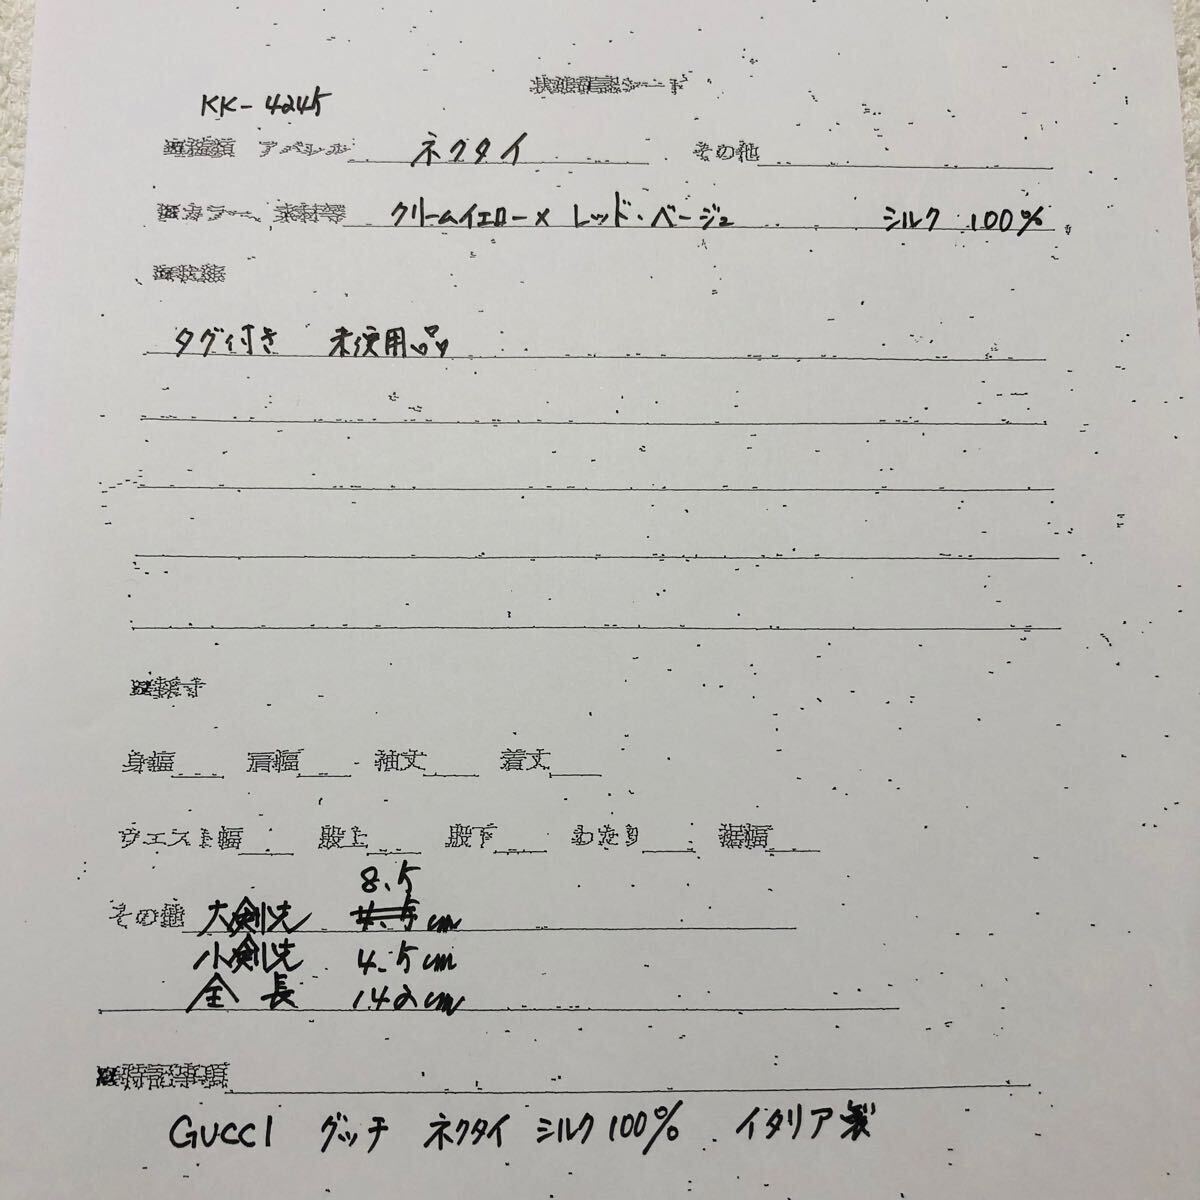 状態確認シート
KK-4245
※種類 アパレル ネクタイ その他
※カラー、素材等 クリームイエロー×レッド・ベージュ シルク 100%
※状態
タグ付き 未使用品
※採寸
身幅 肩幅 袖丈 着丈
ウエスト幅 股上 股下 わたり 裾幅
8.5
その他 大剣先 cm
小剣先 4.5cm
全長 142cm
※特記事項
GUCCI グッチ ネクタイ シルク100% イタリア製